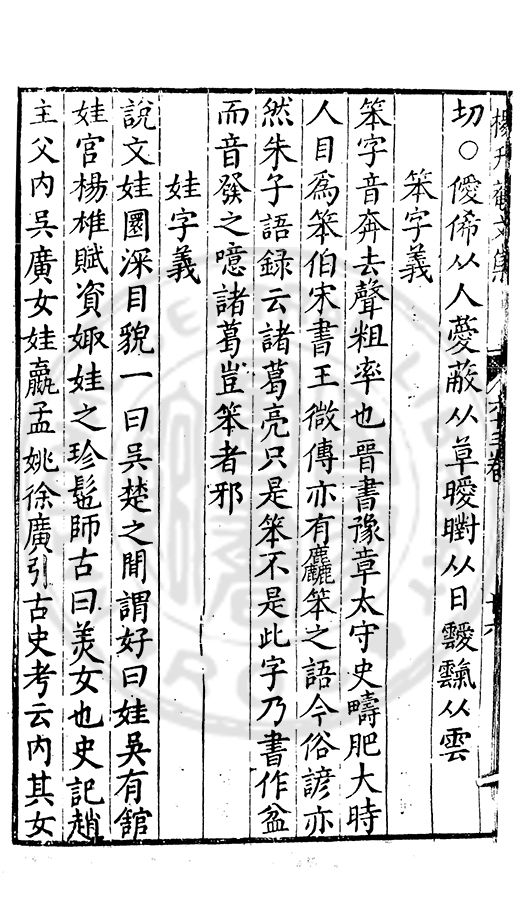 楊升菴文集 六十三卷
切○僾俙从人薆蔽从草曖㬣从日靉靅从雲
笨字義
笨字音奔去聲粗率也晉書豫章太守史疇肥大時
人目為笨伯宋書王微傳亦有麤笨之語今俗諺亦
然朱子語録云諸葛亮只是笨不是此字乃書作盆
而音發之噫諸葛豈笨者邪
娃字義
說文娃圜深目貌一曰吳楚之閒謂好曰娃吳有館
娃宫楊椎賦資娵娃之珍髢師古曰美女也史記趙
主父内吳廣女娃嬴孟姚徐廣引古史考云内其女